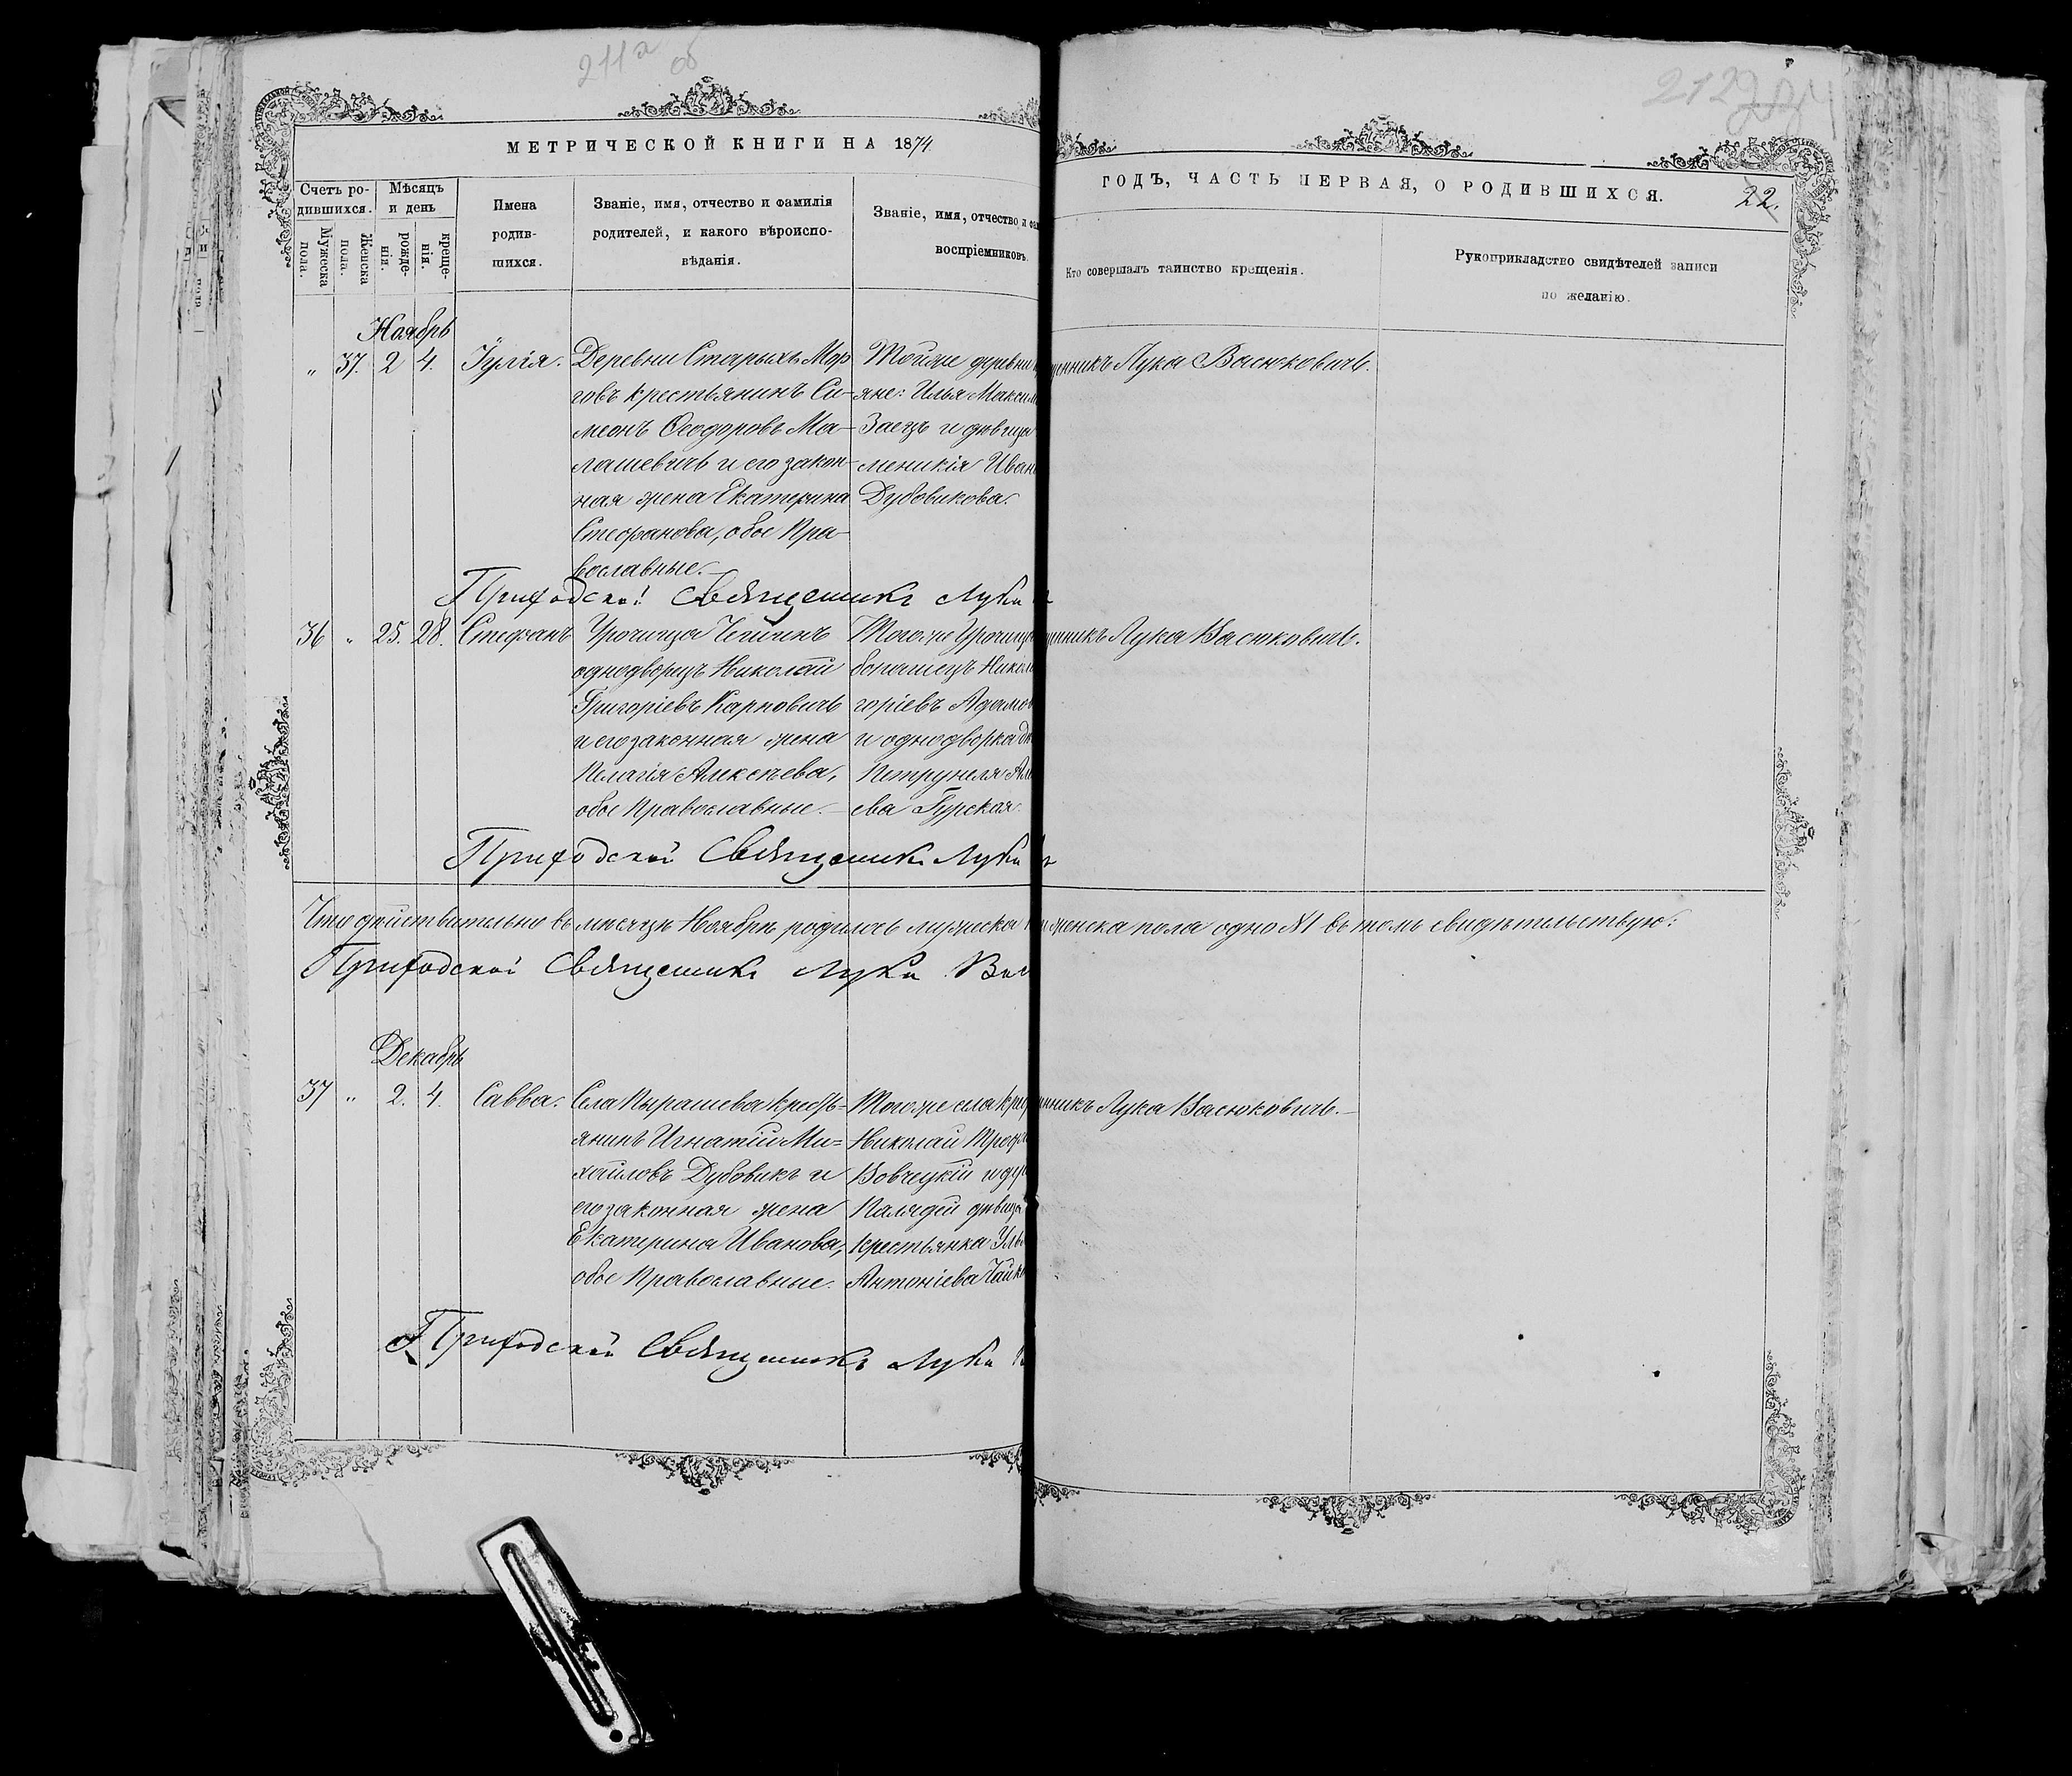 211а об
212
МЕТРИЧЕСКОЙ КНИГИ НА 1874
ГОДЪ, ЧАСТЬ ПЕРВАЯ, О РОДИВШИХСЯ.
22.
Счетъ ро-
дившихся.
Мужеска
пола.
Женска
пола.
Мѣсяцъ
и день
рожде-
нія.
креще-
нія.
Имена
родив-
шихся.
Званіе, имя, отчество и фамилія
родителей, и какого вѣроиспо-
вѣданія.
Званіе, имя, отчество и фа
воспріемниковъ.
Кто совершалъ таинство крещенія.
Рукоприкладство свидѣтелей записи
по желанію.
Ноябрь
" 37. 2 4. Іулія.
Деревни Старыхъ Мор
говъ крестьянинъ Си-
меонъ Ѳеодоровъ Ма-
лашевичъ и его закон-
ная жена Екатерина
Стефанова, обое Пра-
вославные.
Тойже деревни
яне: Илья Максим
Заецъ и дѣвица
меникія Иван
Дубовикова.
щенникъ Лука Васюковичъ.
Приходскій Священникъ Лука
36 " 25. 28. Стефанъ
Урочища
однодворецъ Николай
Григоріевъ Карповичъ
и его законная жена
Пелагія Алексѣева,
обое Православные.
Тогоже Урочища
Никол
горіевъ Адамов
и однодворка
Петрунеля
ева Гурская.
щенникъ Лука Васюковичъ.
Приходскій Священникъ Лука
Что дѣйствительно въ мѣсяцѣ Ноябрѣ родилось мужеска женска пола одно №1 въ томъ свидѣтельствую:
Приходскій Священникъ Лука Вас
Декабрь
37 " 2. 4. Савва.
Села Пырашева крестъ-
янинъ Игнатій Ми-
хайловъ Дубовикъ и
его законная жена
Екатерина Иванова,
обое Православные.
Тогоже села кре
Николай Троф
Вовчецкій и
дѣвица
крестьянка Уль
Антоніева Чайк
нникъ Лука Васюковичъ.
Приходскій Священникъ Лука